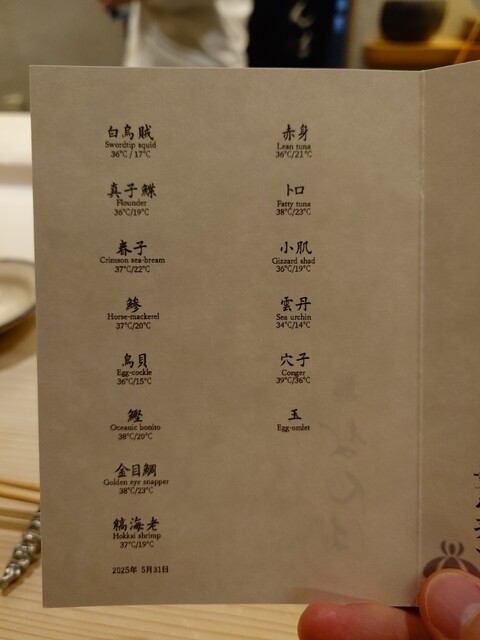 白烏賊
Swordtip squid
36℃ / 17℃
真子鰈
Flounder
36℃/19℃
春子
Crimson sea-bream
37℃/22℃
鯵
Horse-mackerel
37℃/20℃
鳥貝
Egg-cockle
36℃/15℃
鰹
Oceanic bonito
38℃/20℃
金目鯛
Golden eye snapper
38℃/23℃
縞海老
Hokkai shrimp
37℃/19℃
2025年 5月31日
赤身
Lean tuna
36℃/21℃
トロ
Fatty tuna
38℃/23℃
小肌
Gizzard shad
36℃/19℃
雲丹
Sea urchin
34℃/14℃
穴子
Conger
39℃/36℃
玉
Egg-omlet